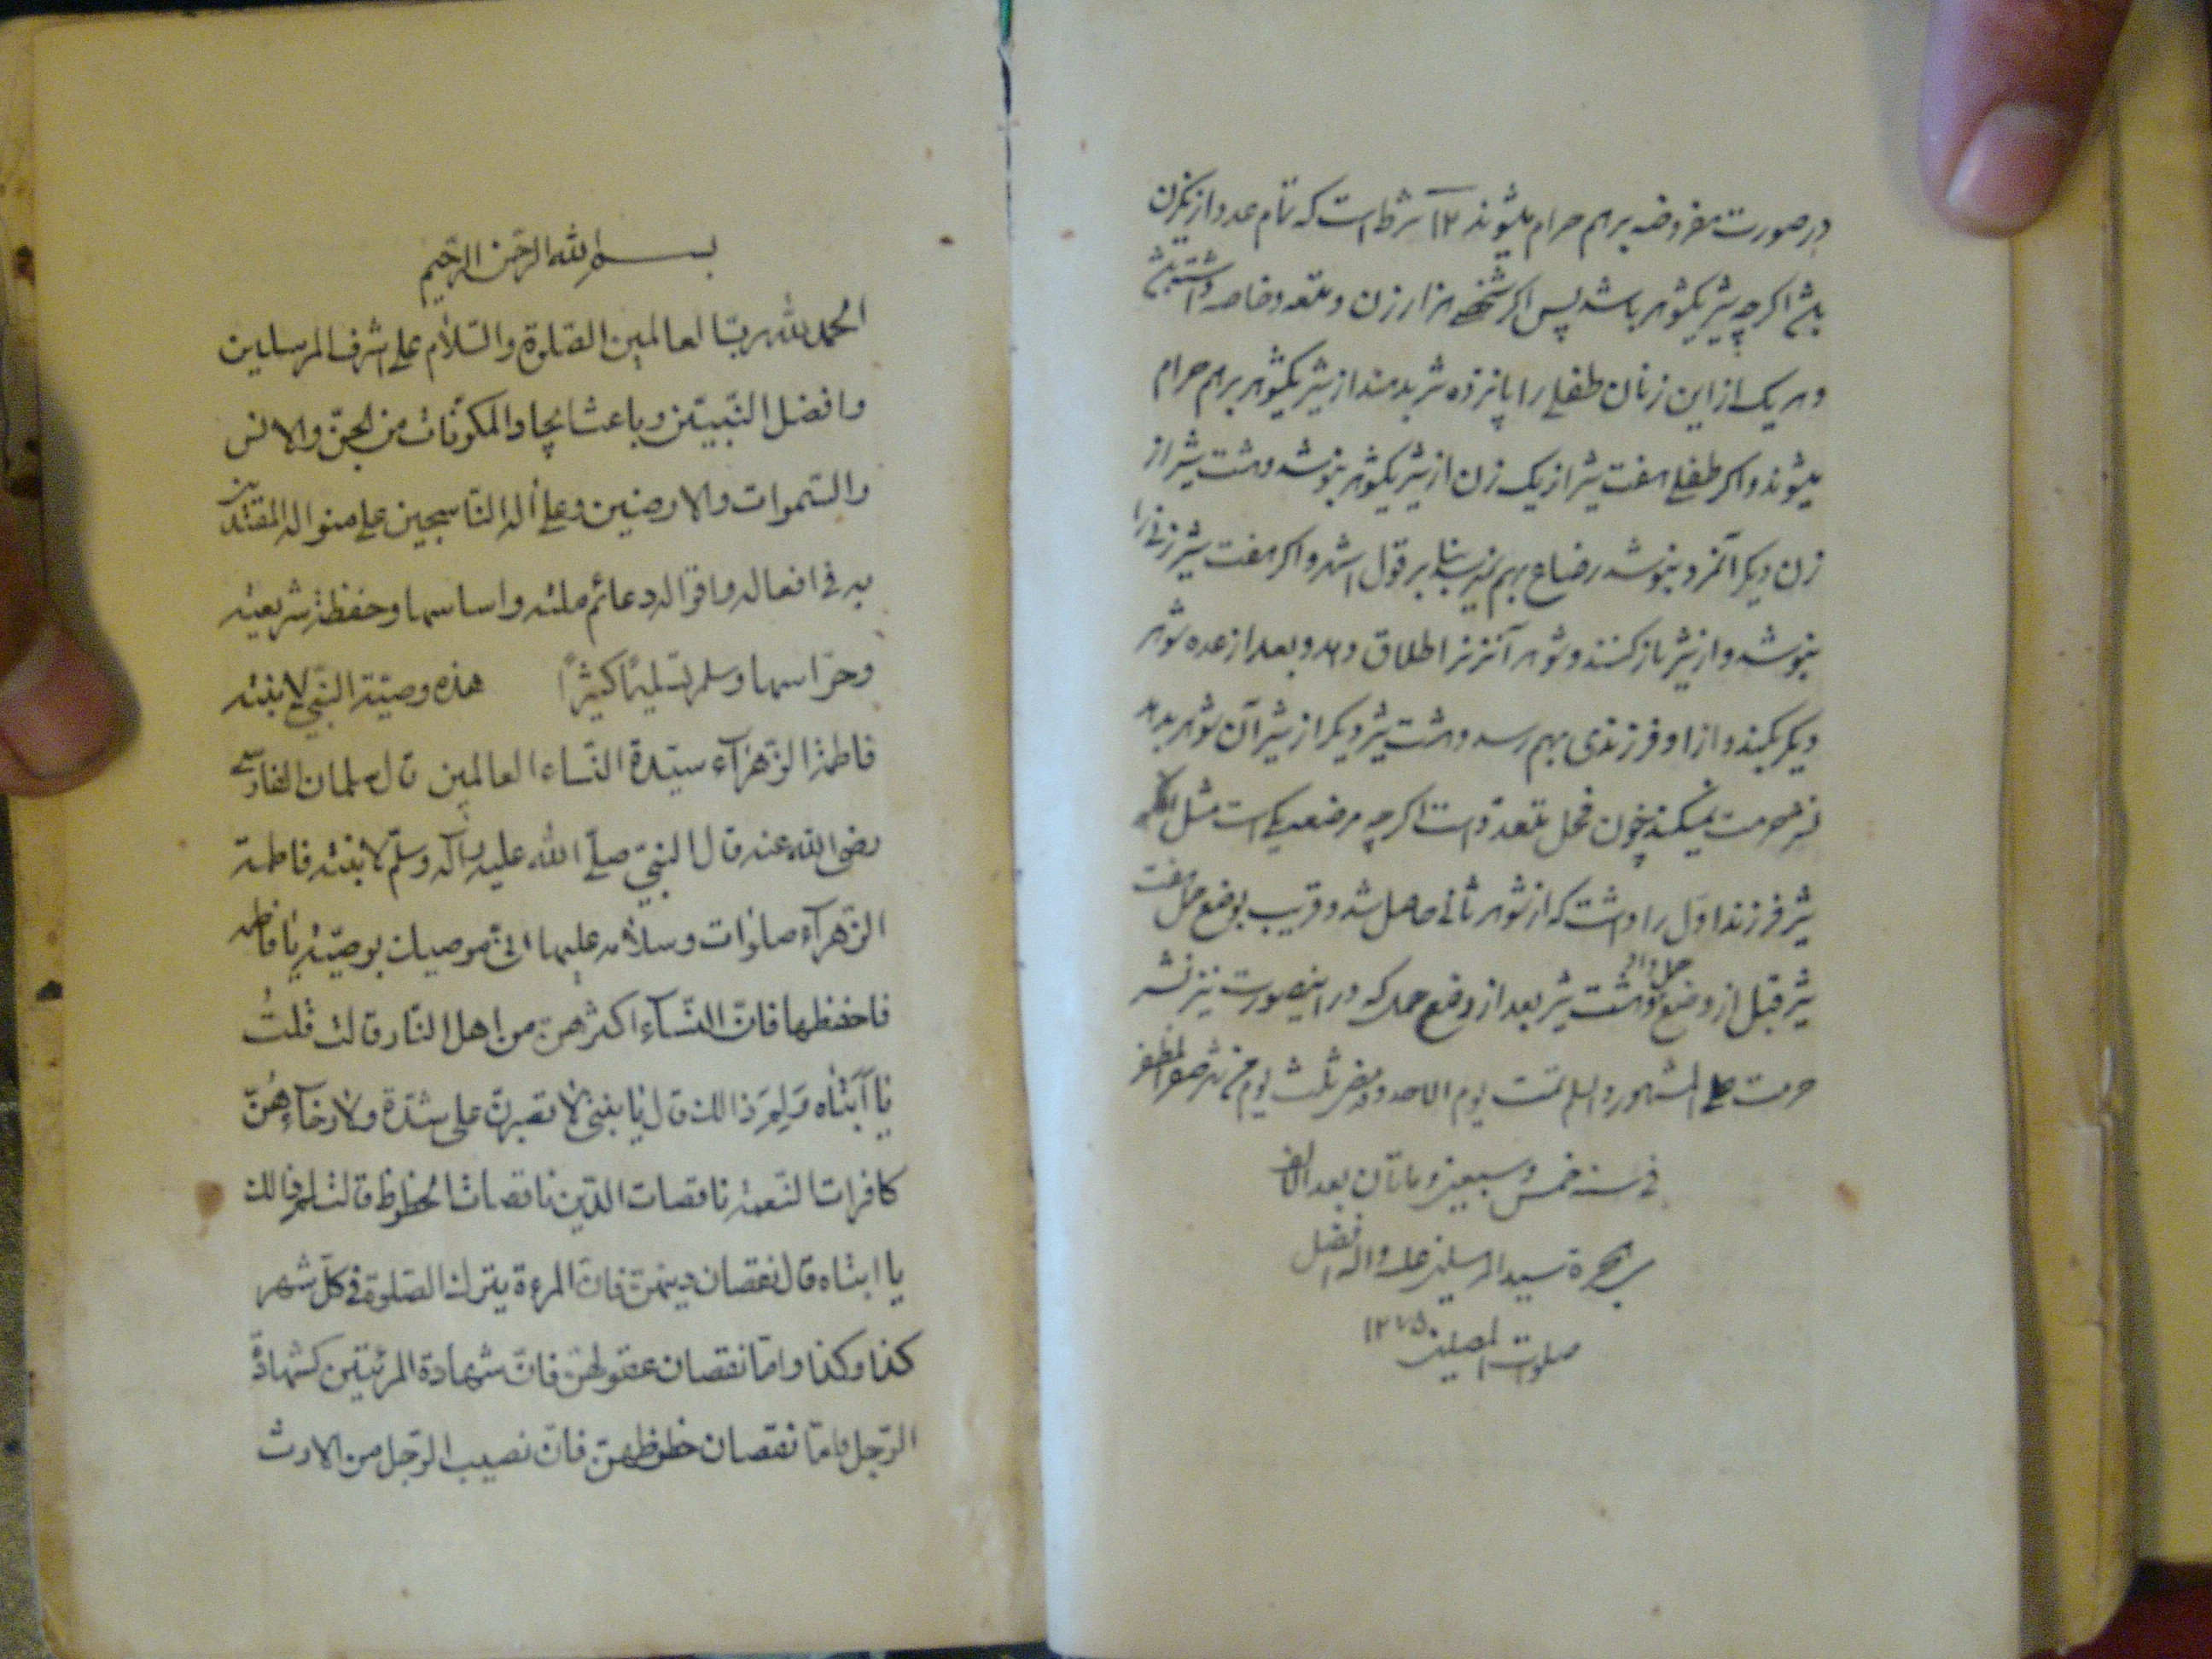 در صورت مفروضه بر هم حرام میشوند ۱۲ شرط است که تمام عدد از یکزن
باشد اگر چه شیر یکشوهر باشد پس اگر شخصی هزار زن و متعه و خاصه داشته باشد
و هر یک از این زنان طفلی را پانزده شیر بدهند از شیر یکشوهر بر هم حرام
میشوند و اگر طفلی هفت شیر از یک زن از شیر یکشوهر بنوشد و هشت شیر از
زن دیگر آنمرد بنوشد رضاع بهم نرسد بنا بر قول اشهر و اگر هفت شیر زنی را
بنوشد و از شیر باز کنند و شوهر آنزنرا طلاق دهد و بعد از عده شوهر
دیگر بکند و از او فرزندی بهم رسد و هشت شیر دیگر از شیر آن شوهر بدهد
نشر حرمت نمیکند چون فحل متعدد است اگر چه مرضعه یکی است مثل
شیر فرزند اول را داشت که از شوهر ثانی حامل شد و قریب بوضع حمل هفت
شیر قبل از وضع حمل داد و هشت شیر بعد از وضع حمل که در اینصورت نیز نشر
حرمت علی المشهور و السلم تمت یوم الاحد و قد مضی ثلث یوم من شهر صفر المظفر
فی سنه خمس و سبعین و ماتان بعد الالف
من هجرة سید المرسلین علیه و اله افضل
صلوت المصلین ۱۲۷۵
بسم الله الرحمن الرحیم
الحمد لله رب العالمین الصلوة والسلام علی اشرف المرسلین
وافضل النبیین وباعث ایجاد المکونات من الجن والانس
والسموات والارضین وعلی اله الناسجین علی منواله المقتدین
به فی افعاله واقواله دعائم ملته واساسها وحفظة شریعته
وحراسها وسلم تسلیما کثیرا هذه وصیة النبی لابنته
فاطمة الزهرآء سیدة النساء العالمین قال سلمان الفارسی
رضی الله عنه قال النبی صلی الله علیه وآله وسلم لابنته فاطمة
الزهرآء صلوات وسلامه علیها انی موصیك بوصیة یا فاطمه
فاحفظها فان النسآء اکثرهن من اهل النار قالت قلت
یا آبتاه ولم ذالك قال یا بنتی لا تصبرن علی شدة ولا رخآء هن
کافرات النعمة ناقصات الدین ناقصات الحظوظ قالت لم ذالك
یا ابتاه قال نقصان دینهن فان المرءة یترك الصلوة فی کل شهر
کذا وکذا واما نقصان عقولهن فان شهادة المرئتین کشهادة
الرجل واما نقصان حظوظهن فان نصیب الرجل من الارث